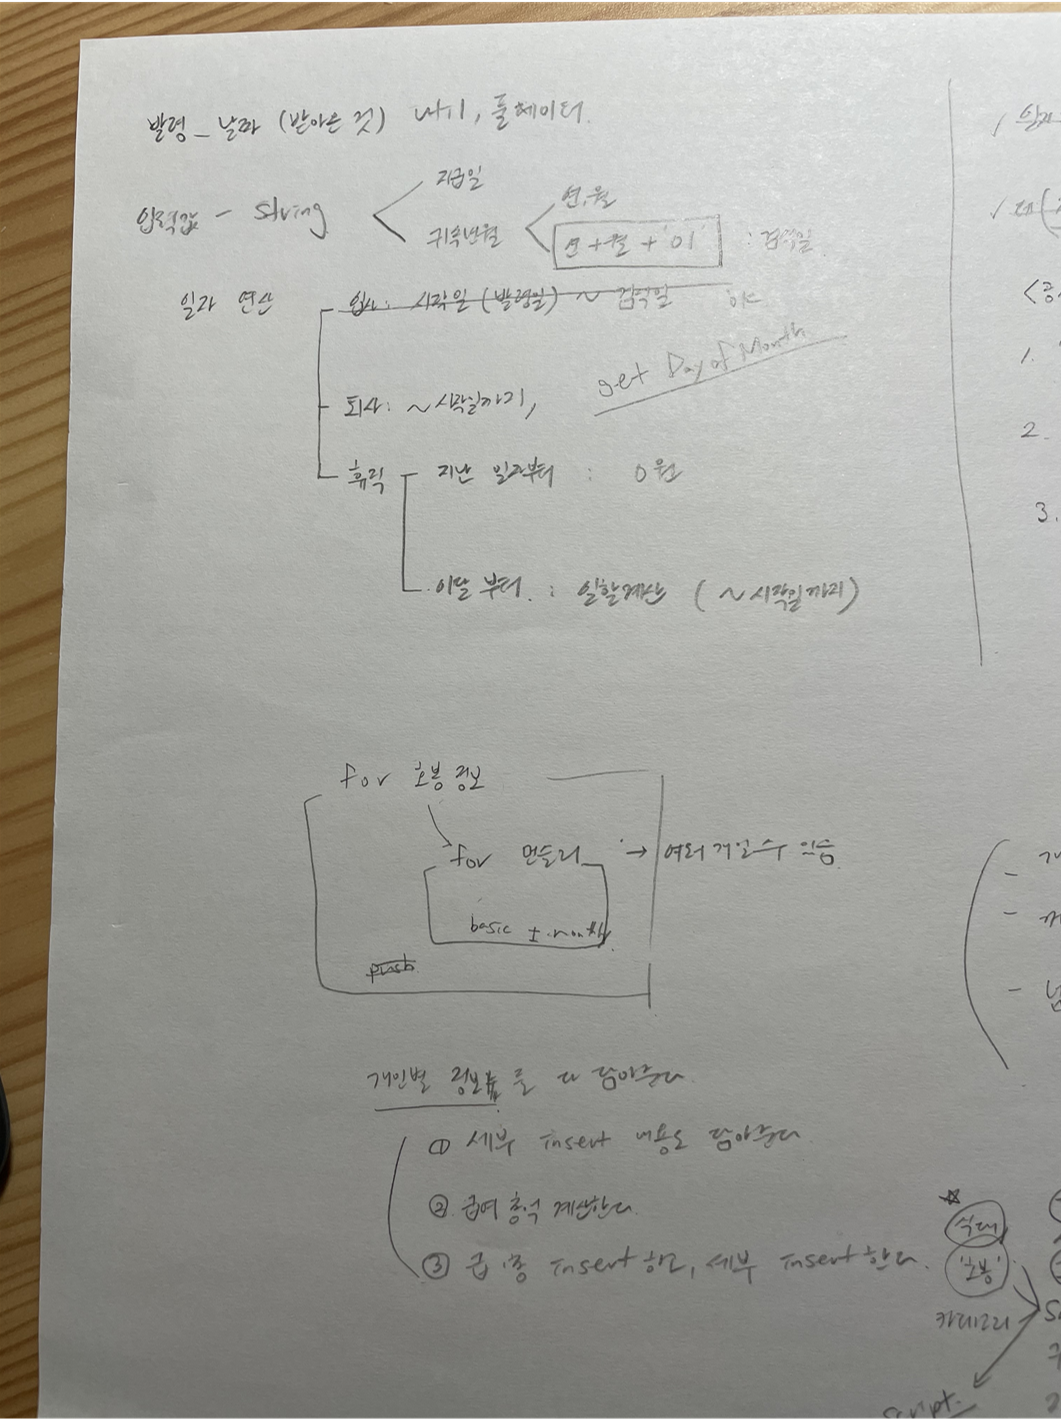 발령_날짜 (받아온 것) 나이, 풀데이터.
입력값 - string
지급일
귀속년월
연,월
연+월+'01' : 검색일
일자 연산
입사: 시작일(발령일) ~ 검색일
get Day of Month
퇴사: ~시작일까지,
휴직
지난 일자부터 : 0원
이달부터 : 일할계산 (~시작일까지)
for 호봉정보
for 먼슬리 → 여러 개일수 있음
basic ± month
push
개인별 정보를 다 담아준다.
① 세부 insert 내용도 담아준다.
② 급여 총액 계산한다.
③ 급 총 insert 하고, 세부 insert 한다.
<
1.
2.
3.
식대
'호봉'
카테고리
script.